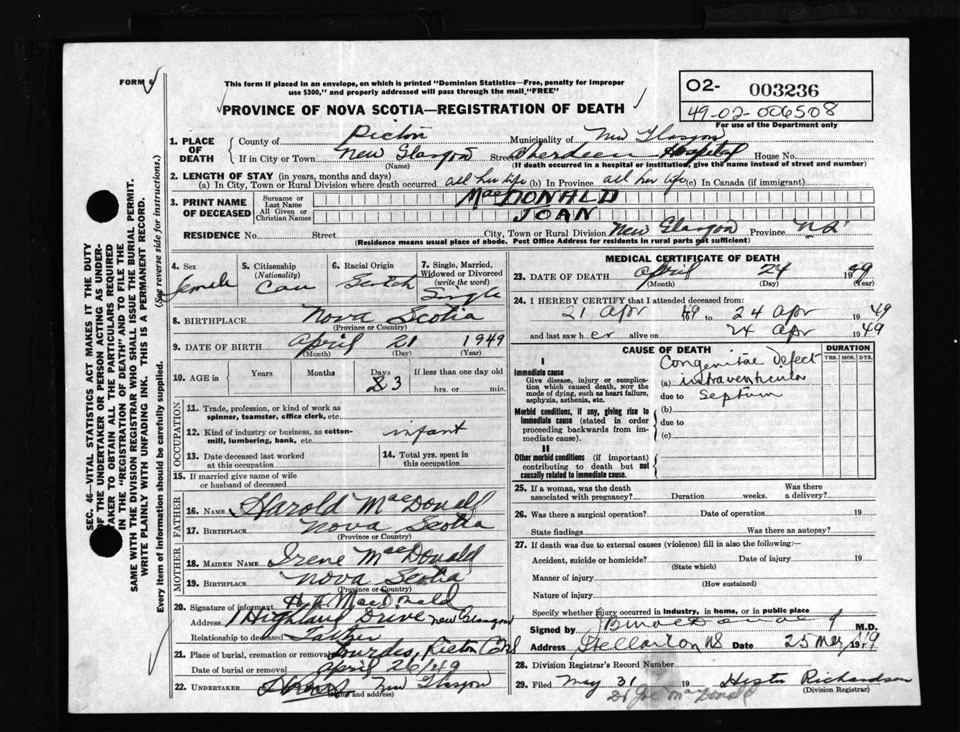 FORM
This form if placed in an envelope, on which is printed "Dominion Statistics—Free, penalty for improper
use $300," and properly addressed will pass through the mail "FREE"
PROVINCE OF NOVA SCOTIA—REGISTRATION OF DEATH
O2- 003236
49-02-006508
For use of the Department only
1. PLACE OF DEATH
County of Pictou Municipality of New Glasgow
If in City or Town New Glasgow Street Aberdeen Hospital House No.
(Name) (If death occurred in a hospital or institution, give the name instead of street and number)
2. LENGTH OF STAY (in years, months and days)
(a) In City, Town or Rural Division where death occurred all her life (b) In Province all her life (c) In Canada (if immigrant)
3. PRINT NAME OF DECEASED
Surname or Last Name MacDONALD
All Given or Christian Names JOAN
RESIDENCE No. Street City, Town or Rural Division New Glasgow Province N.S.
(Residence means usual place of abode. Post Office Address for residents in rural parts not sufficient)
4. Sex Female
5. Citizenship (Nationality) Can
6. Racial Origin Scotch
7. Single, Married, Widowed or Divorced (write the word) Single
8. BIRTHPLACE Nova Scotia
(Province or Country)
9. DATE OF BIRTH April 21 1949
(Month) (Day) (Year)
10. AGE in Years Months Days 3 If less than one day old
hrs. or min.
OCCUPATION
11. Trade, profession, or kind of work as
spinner, teamster, office clerk, etc.
12. Kind of industry or business, as cotton-
mill, lumbering, bank, etc. infant
13. Date deceased last worked
at this occupation
14. Total yrs. spent in
this occupation
15. If married give name of wife
or husband of deceased
FATHER
16. NAME Harold MacDonald
17. BIRTHPLACE Nova Scotia
(Province or Country)
MOTHER
18. MAIDEN NAME Irene MacDonald
19. BIRTHPLACE Nova Scotia
(Province or Country)
20. Signature of informant MacDonald
Address Highland Drive New Glasgow
Relationship to deceased Father
21. Place of burial, cremation or removal Lourdes, Pictou Co NS
Date of burial or removal April 26/49
22. UNDERTAKER New Glasgow
(Name and address)
MEDICAL CERTIFICATE OF DEATH
23. DATE OF DEATH April 24 1949
(Month) (Day) (Year)
24. I HEREBY CERTIFY that I attended deceased from:
21 Apr 1949 to 24 Apr 1949
and last saw her alive on 24 Apr 1949
CAUSE OF DEATH
DURATION
YRS. MOS. DYS.
I
Immediate cause
Give disease, injury or complica-
tion which caused death, not the
mode of dying, such as heart failure,
asphyxia, asthenia, etc.
Congenital defect
(a) intraventricular
due to septum
Morbid conditions, if any, giving rise to
immediate cause (stated in order
proceeding backwards from im-
mediate cause).
(b)
due to
(c)
II
Other morbid conditions (if important)
contributing to death but not
causally related to immediate cause.
25. If a woman, was the death
associated with pregnancy? Duration weeks. Was there
a delivery?
26. Was there a surgical operation? Date of operation 19
State findings Was there an autopsy?
27. If death was due to external causes (violence) fill in also the following:—
Accident, suicide or homicide? Date of injury 19
(State which)
Manner of injury
(How sustained)
Nature of injury
Specify whether injury occurred in industry, in home, or in public place
Signed by M.D.
Address Stellarton NS Date 25 May 1949
28. Division Registrar's Record Number
29. Filed May 31 19 Richardson
(Division Registrar)
Dr Joe MacDonald
SEC. 46—VITAL STATISTICS ACT MAKES IT THE DUTY
OF THE UNDERTAKER OR PERSON ACTING AS UNDER-
TAKER TO OBTAIN ALL THE PARTICULARS REQUIRED
IN THE "REGISTRATION OF DEATH" AND TO FILE THE
SAME WITH THE DIVISION REGISTRAR WHO SHALL ISSUE THE BURIAL PERMIT.
WRITE PLAINLY WITH UNFADING INK. THIS IS A PERMANENT RECORD.
Every item of information should be carefully supplied. (See reverse side for instructions.)